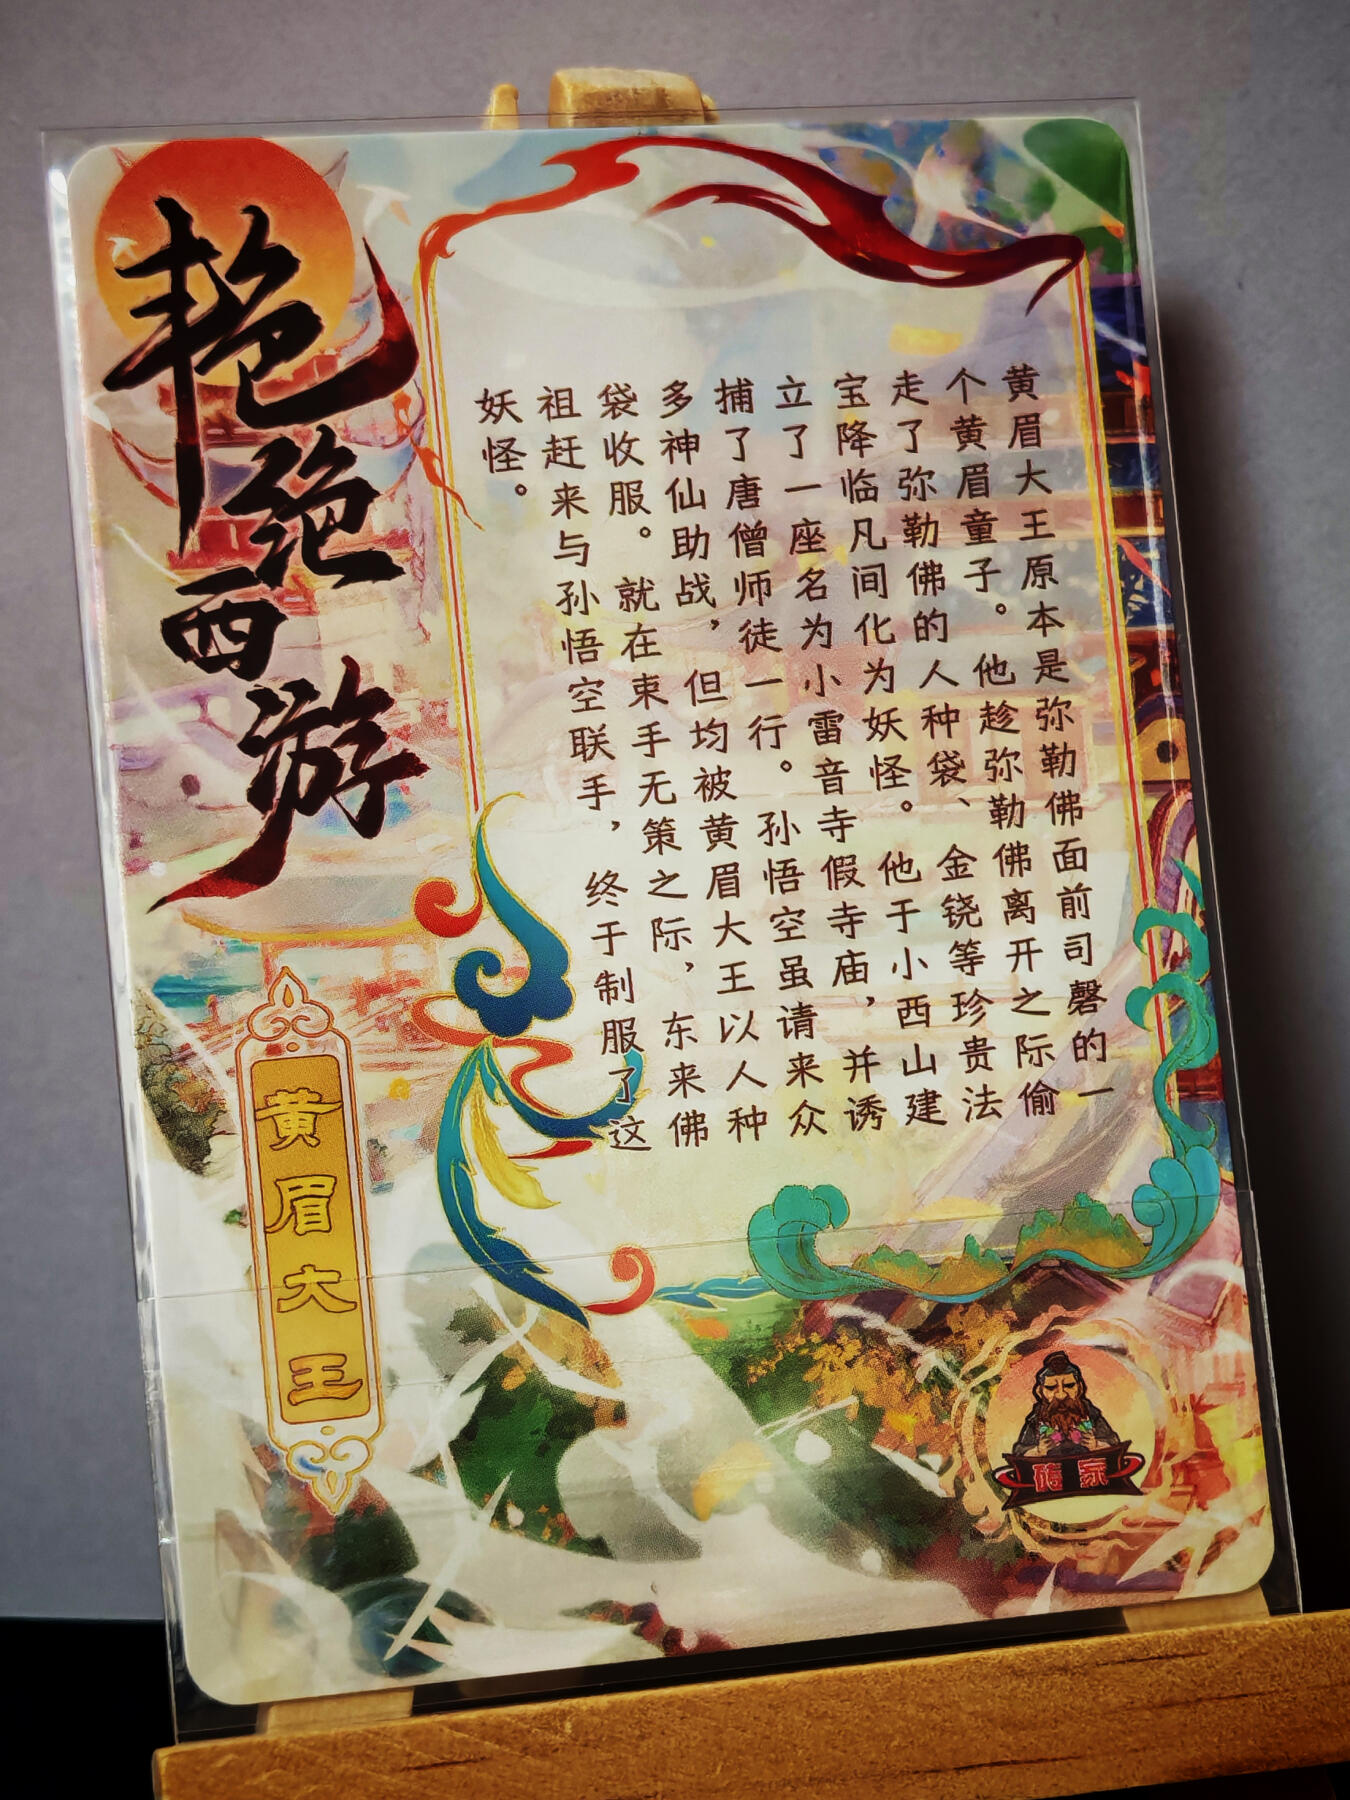 艳绝西游
黄眉大王原本是弥勒佛面前司磬的一
个黄眉童子。他趁弥勒佛离开之际偷
走了弥勒佛的人种袋、金铙等珍贵法
宝降临凡间化为妖怪。他于小西山建
立了一座名为小雷音寺假寺庙，并诱
捕了唐僧师徒一行。孙悟空虽请来众
多神仙助战，但均被黄眉大王以人种
袋收服。就在束手无策之际，东来佛
祖赶来与孙悟空联手，终于制服了这
妖怪。
黄眉大王
砖家